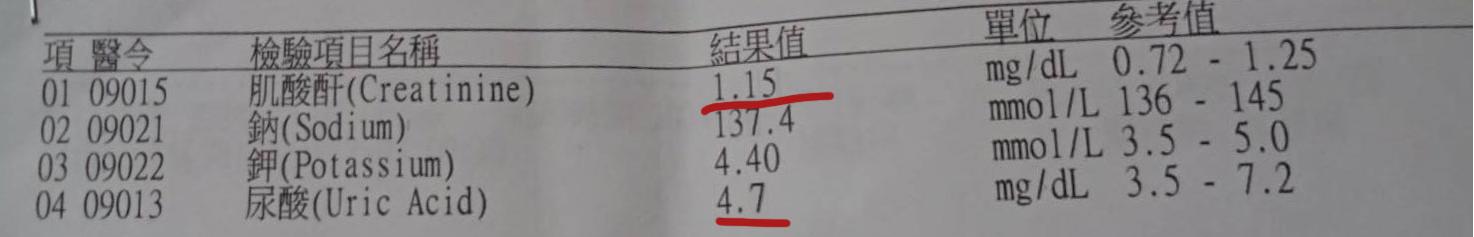 項 醫令 檢驗項目名稱 結果值 單位 參考值
01 09015 肌酸酐(Creatinine) 1.15 mg/dL 0.72 - 1.25
02 09021 鈉(Sodium) 137.4 mmol/L 136 - 145
03 09022 鉀(Potassium) 4.40 mmol/L 3.5 - 5.0
04 09013 尿酸(Uric Acid) 4.7 mg/dL 3.5 - 7.2